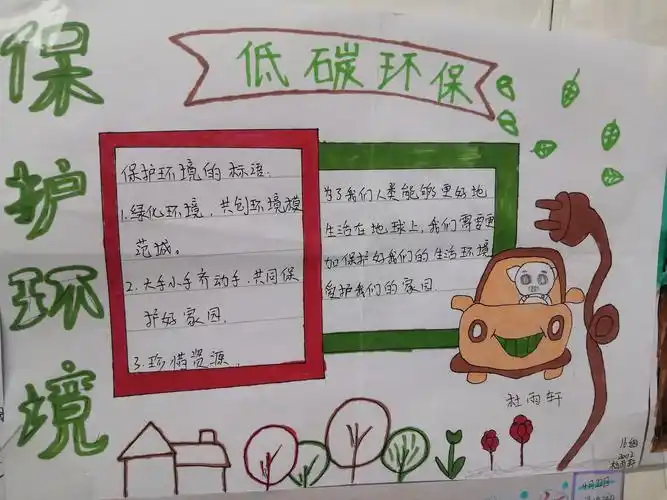 保护环境
低碳环保
保护环境的标准:
1.绿化环境,共创环境模
范城。
2.大手小手齐动手,共同保
护好家园.
3.珍惜资源.
为了我们人类能够更好地
生活在地球上,我们需要更
加保护好我们的生活环境
爱护我们的家园.
杜雨轩